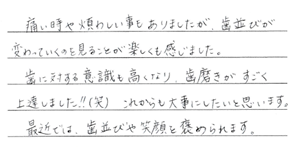 痛い時や煩わしい事もありましたが、歯並びが
変わっていくのを見ることが楽しくも感じました。
歯に対する意識も高くなり、歯磨きがすごく
上達しました!!(笑) これからも大事にしたいと思います。
最近では、歯並びや笑顔を褒められます。